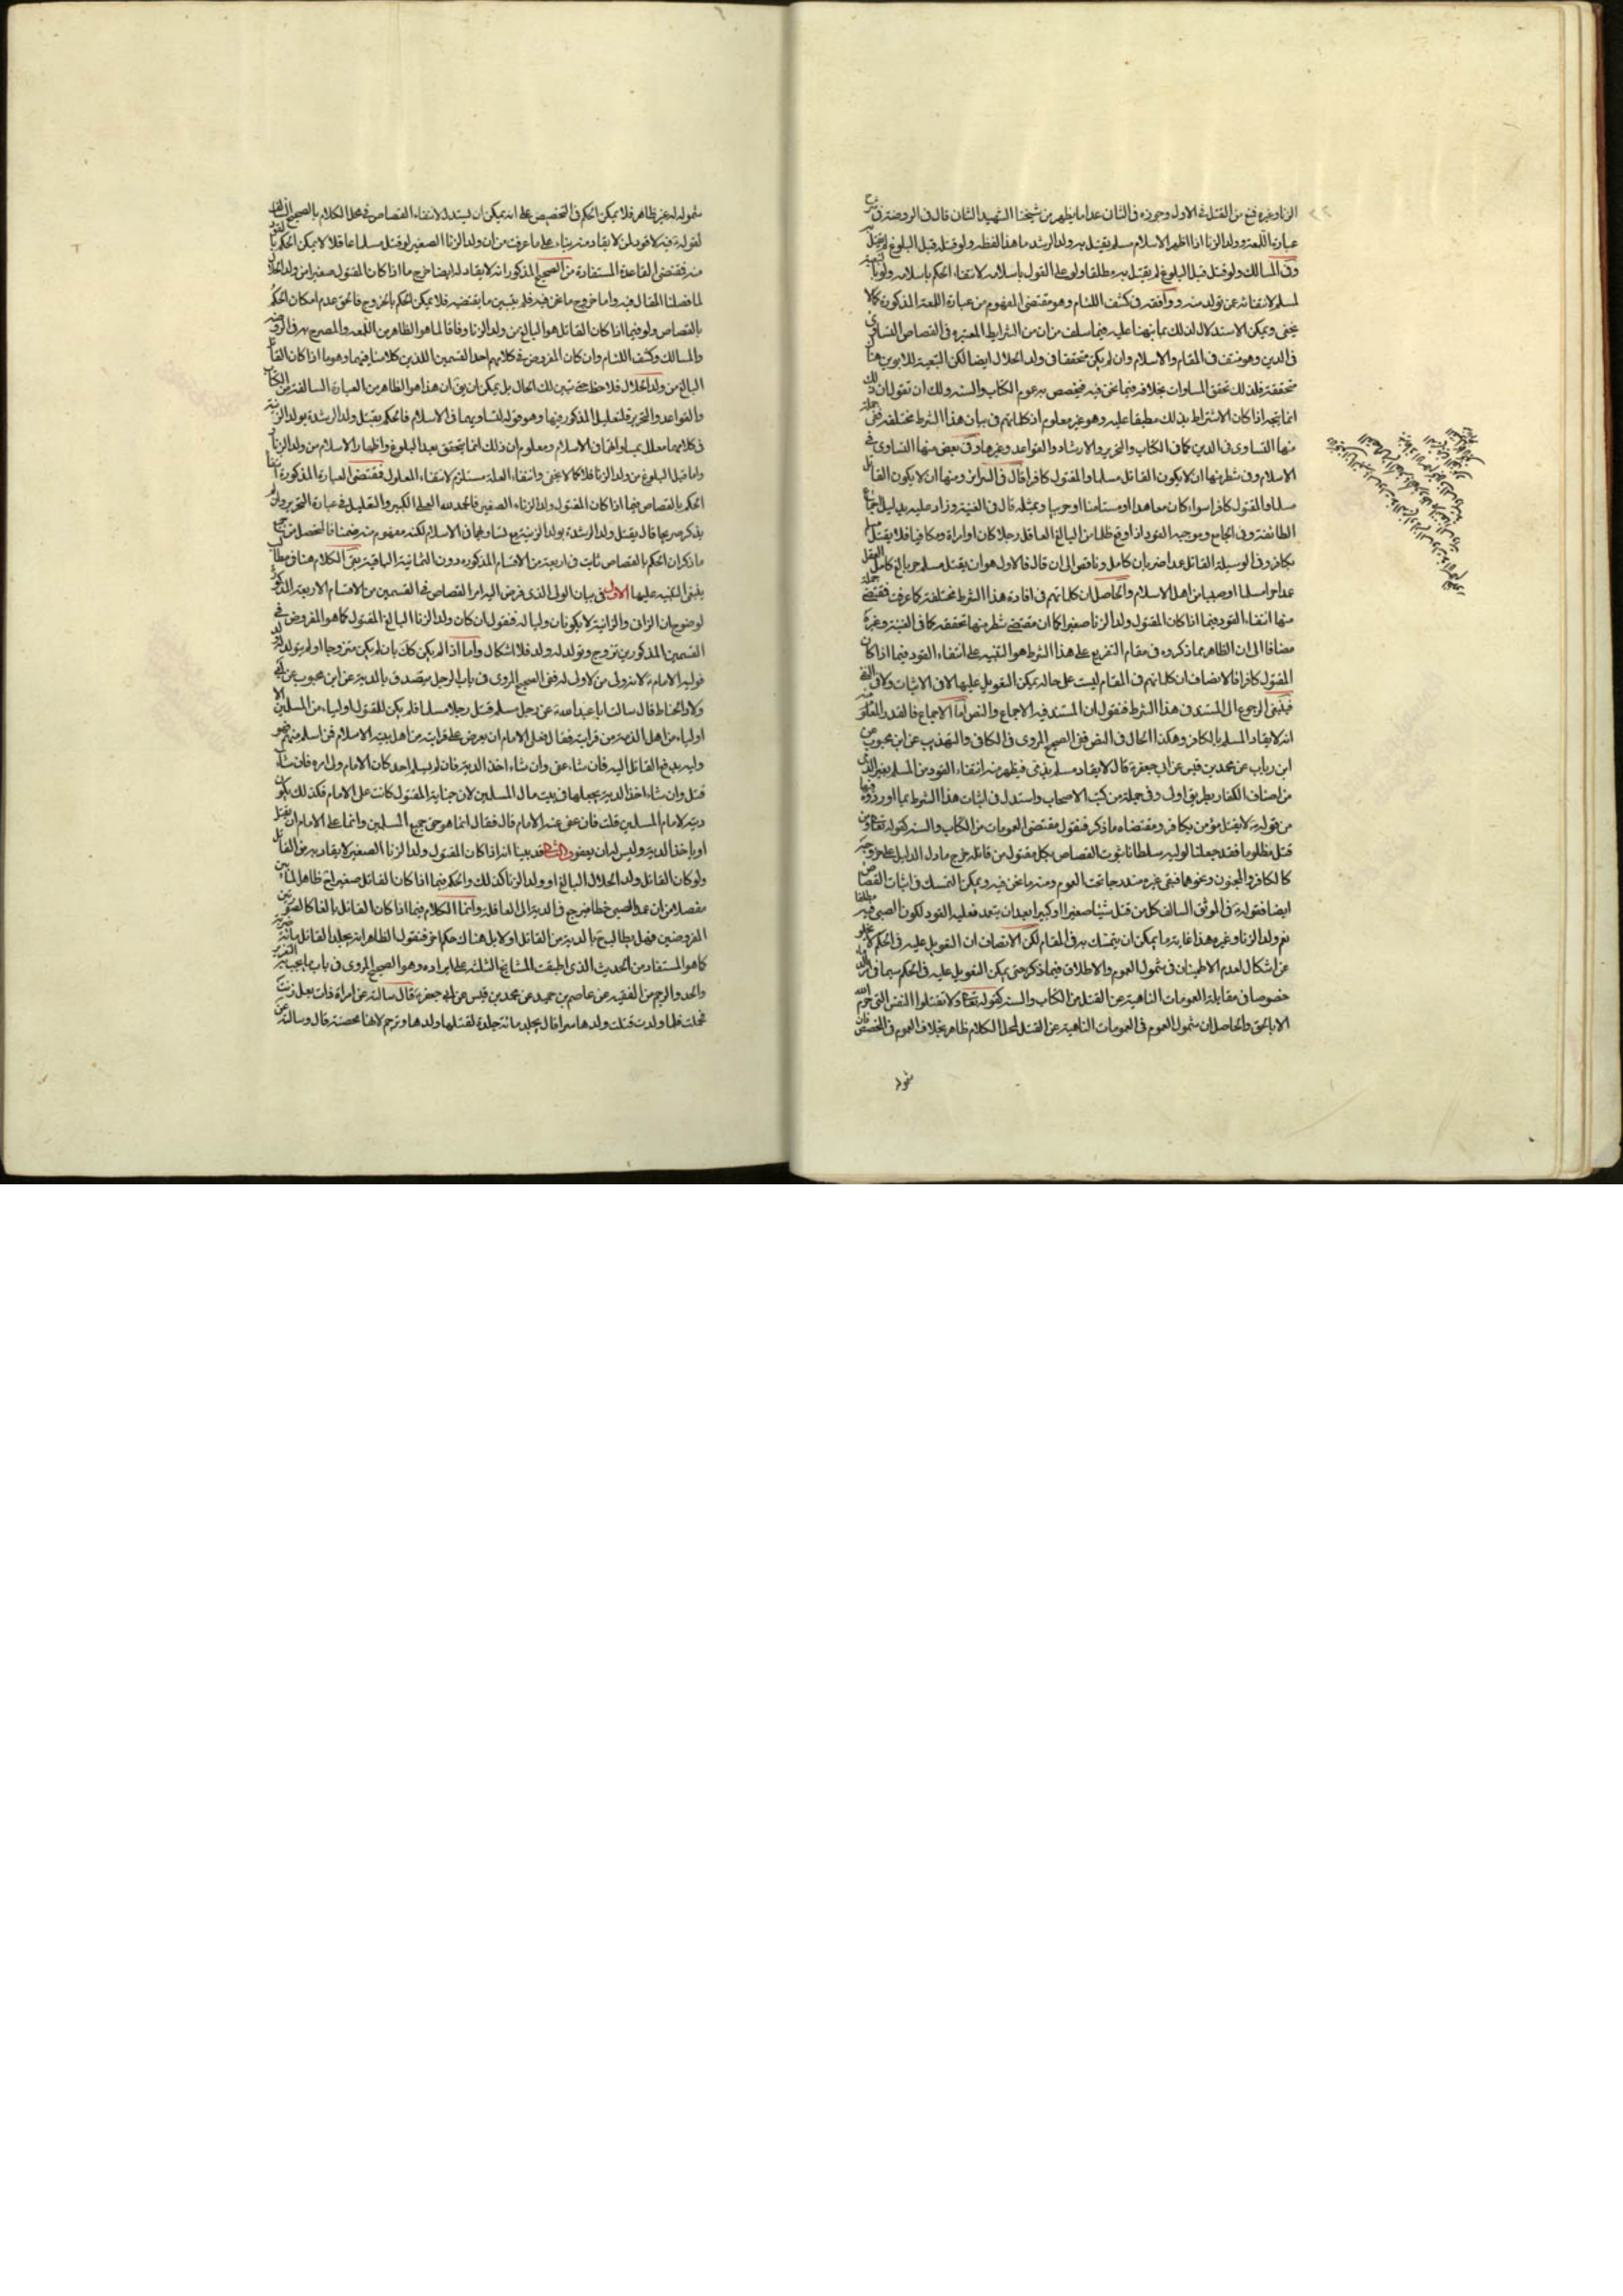 الزنا وغيره فمنع من القتل في الاول وجوزه في الثاني عدا ما يظهر من شيخنا الشهيد الثاني قال في الروضة في شرح
عبارة اللمعة وولد الزنا اذا اظهر الاسلام مسلم يقتل به ولد الرشد ما هذا لفظه ولو قتله قبل البلوغ لم يقتل به
وفي المسالك ولو قتل قبل البلوغ لم يقتل به مطلقا ولو على القول باسلامه لانتفاء الحكم باسلامه ولو بالتبعية
لمسلم لانتفائه عن تولد منه ووافقه في كشف اللثام وهو مقتضى المفهوم من عبارة اللمعة المذكورة كما لا
يخفى ويمكن الاستدلال لذلك بما نبهنا عليه فيما سلف من ان من الشرايط المعتبره في القصاص التساوي
في الدين وهو منتف في المقام والاسلام وان لم يكن متحققا في ولد الحلال ايضا لكن التبعية للابوين هنا
متحققة فلذلك تحقق المساوات بخلافه فيما نحن فيه فيخصص به عموم الكتاب والسنه ولك ان تقول ان ذلك
انما يتجه اذا كان الاشتراط بذلك مطبقا عليه وهو غير معلوم اذ كلماتهم في بيان هذا الشرط مختلفه ففي جملة
منها التساوى في الدين كما في الكتاب والتحرير والارشاد والقواعد وغيرها وفي بعض منها التساوى في
الاسلام وفي شطر منها ان لا يكون القاتل مسلما والمقتول كافرا قال في السرائر ومنها ان لا يكون القاتل
مسلما والمقتول كافرا سواء كان معاهدا او مستامنا او حربيا وبمثله قال في الغنية وزاد عليه بدليل اجماع
الطائفة وفي الجامع وموجبه القود اذا وقع ظلما من البالغ العاقل رجلا كان او امراة ومكافيا فلا يقتل مسلم
بكافر وفي الوسيلة القاتل عمدا ضربان كامل وناقص الى ان قال فالاول هو ان يقتل مسلم حر بالغ كامل العقل
عمدا حرا مسلما او صبيا من اهل الاسلام والحاصل ان كلماتهم في افادة هذا الشرط مختلفة كما عرفت فمقتضى جملة
منها انتفاء القود فيما اذا كان المقتول ولد الزنا صغيرا كما ان مقتضى شطر منها تحققه كما في الغنية وغيره
مضافا الى ان الظاهر مما ذكروه في مقام التفريع على هذا الشرط هو التنبيه على انتفاء القود فيما اذا كان
المقتول كافرا فالانصاف ان كلماتهم في المقام ليست على حاله يمكن التعويل عليها لا في الاثبات ولا في النفي
فينبغى الرجوع الى المستند في هذا الشرط فنقول ان المستند فيه الاجماع والنص اما الاجماع فالقدر المعلوم منه
انه لا يقاد المسلم بالكافر وهكذا الحال في النص ففي الصحيح المروى في الكافي والتهذيب عن ابن محبوب عن
ابن رياب عن محمد بن قيس عن ابي جعفر قال لا يقاد مسلم بذمي فيظهر منه انتفاء القود من المسلم بغير الذمي
من اصناف الكفار بطريق اولى وفي جملة من كتب الاصحاب واستدل في اثبات هذا الشرط بما اوردوه فيها
من قوله لا يقتل مؤمن بكافر ومقتضاه ما ذكر فنقول مقتضى العمومات من الكتاب والسنه كقوله تعالى ومن
قتل مظلوما فقد جعلنا لوليه سلطانا ثبوت القصاص بكل مقتول من قاتله خرج ما دل الدليل على خروجه
كالكافر والمجنون ونحوهما فبقى غيره مندرجا تحت العموم ومنه ما نحن فيه ويمكن التمسك في اثبات القصاص
ايضا بقوله في الموثق السالف كل من قتل شيئا صغيرا او كبيرا بعد ان يتعمد فعليه القود لكون الصبي فيه مطلقا
نعم ولد الزنا وغيره هذا غاية ما يمكن ان يتمسك به في المقام لكن الانصاف ان التعويل عليه في الحكم لا يخلو
عن اشكال لعدم الاطمينان في شمول العموم والاطلاق فيما ذكر حتى يمكن التعويل عليه في الحكم سيما في
خصوصا في مقابلة العمومات الناهية عن القتل من الكتاب والسنه كقوله تعالى ولا تقتلوا النفس التي حرم الله
الا بالحق والحاصل ان شمول العموم في العمومات الناهية عن القتل لمحل الكلام ظاهر بخلاف العموم في المخصص فان
شموله
شموله له غير ظاهر فلا يمكن الحكم في التخصيص على انه يمكن ان يستدل لانتفاء القصاص في محل الكلام بالصحيح السالف
لقوله فيه لا قود لمن لا يقاد منه بناء على ما عرفت من ان ولد الزنا الصغير لو قتل مسلما عاقلا لا يمكن الحكم بالقود
منه فمقتضى القاعدة المستفادة من الصحيح المذكور انه لا يقاد له ايضا خرج ما اذا كان المقتول صغيرا من ولد الحلال
لما فصلنا المقال فيه واما خروج ما نحن فيه فلم يتبين ما يقتضيه فلا يمكن الحكم بالخروج فالحق عدم امكان الحكم
بالقصاص ولو فيما اذا كان القاتل هو البالغ من ولد الزنا وفاقا لما هو الظاهر من اللمعه والمصرح به في الروضه
والمسالك وكشف اللثام وان كان المفروض في كلامهم احد القسمين اللذين كلامنا فيهما وهو ما اذا كان القاتل
البالغ من ولد الحلال فلاحظ حتى تبين لك الحال بل يمكن ان يق ان هذا هو الظاهر من العبارة السالفة من الكتاب
والقواعد والتحرير قلت لعليل المذكور فيها وهو قوله لتساويهما في الاسلام فالحكم بقتل ولد الرشدة بولد الزنية
في كلامهما معلل بمساواتهما في الاسلام ومعلوم ان ذلك انما يتحقق بعد البلوغ واظهار الاسلام من ولد الزنا
واما قبل البلوغ من ولد الزنا فلا كما لا يخفى وانتفاء العلة مستلزم لانتفاء المعلول فمقتضى العبارة المذكورة انتفاء
الحكم بالقصاص فيما اذا كان المقتول ولد الزناء الصغير فالحمد لله العلي الكبير والتعليل في عبارة التحرير وان لم
يذكر صريحا قال يقتل ولد الرشدة بولد الزنية مع تساويهما في الاسلام لكنه مفهوم منه ضمنا فالحصل من جميع
ما ذكر ان الحكم بالقصاص ثابت في اربعة من الاقسام المذكوره دون الثمانية الباقية بقى الكلام هنا في مطالب
ينبغى التنبيه عليها الاول في بيان الولى الذي فوض اليه امر القصاص في القسمين من الاقسام الاربعة المذكورة
لوضوح ان الزاني والزانية لا يكونان وليا له فنقول ان كان ولد الزنا البالغ المقتول كما هو المفروض في
القسمين المذكورين تزوج وتولد له ولد فلا اشكال واما اذا لم يكن كك بان لم يكن متزوجا او لم يتولد له ولد
فوليه الامام لانه ولى من لا ولى له ففي الصحيح المروى في باب الرجل يتصدق بالدية عن ابن محبوب عن ابي
ولاد الحناط قال سالت ابا عبد الله عن رجل مسلم قتل رجلا مسلما فلم يكن للمقتول اولياء من المسلمين الا
اولياء من اهل الذمة من قرابته فقال على الامام ان يعرض على قرابته من اهل بيته الاسلام فمن اسلم منهم فهو
وليه يدفع القاتل اليه فان شاء عفى وان شاء اخذ الدية فان لم يسلم احد كان الامام ولى امره فان شاء
قتل وان شاء اخذ الدية يجعلها في بيت مال المسلمين لان جناية المقتول كانت على الامام فكذلك يكون
ديته لامام المسلمين قلت فان عفى عنه الامام قال فقال انما هو حق جميع المسلمين وانما على الامام ان يقتل
او ياخذ الدية وليس له ان يعفو والثاني قد بينا انه اذا كان المقتول ولد الزنا الصغير لا يقاد به من القاتل
ولو كان القاتل ولد الحلال البالغ او ولد الزنا كذلك والحكم فيما اذا كان القاتل صغيرا
مفصلا من ان عمد الصبى خطا فيرجع في الدية الى العاقلة وانما الكلام فيما اذا كان القاتل بالغا كالصورتين
المفروضتين فهل يطالب بالدية من القاتل او لا بل هناك حكم اخر فنقول الظاهر انه يجلد القاتل مائة ضربة
كما هو المستفاد من الحديث الذي اطبقت المشايخ الثلثه على ايراده وهو الصحيح المروى في باب ما يجب به التعزير
والحد والرجم من الفقيه عن عاصم بن حميد عن محمد بن قيس عن ابي جعفر قال سالته عن امراة ذات بعل زنت
فحملت فلما ولدت قتلت ولدها سرا فقال يجلد مائة جلدة لقتلها ولدها وترجم لانها محصنة قال وسالته عن